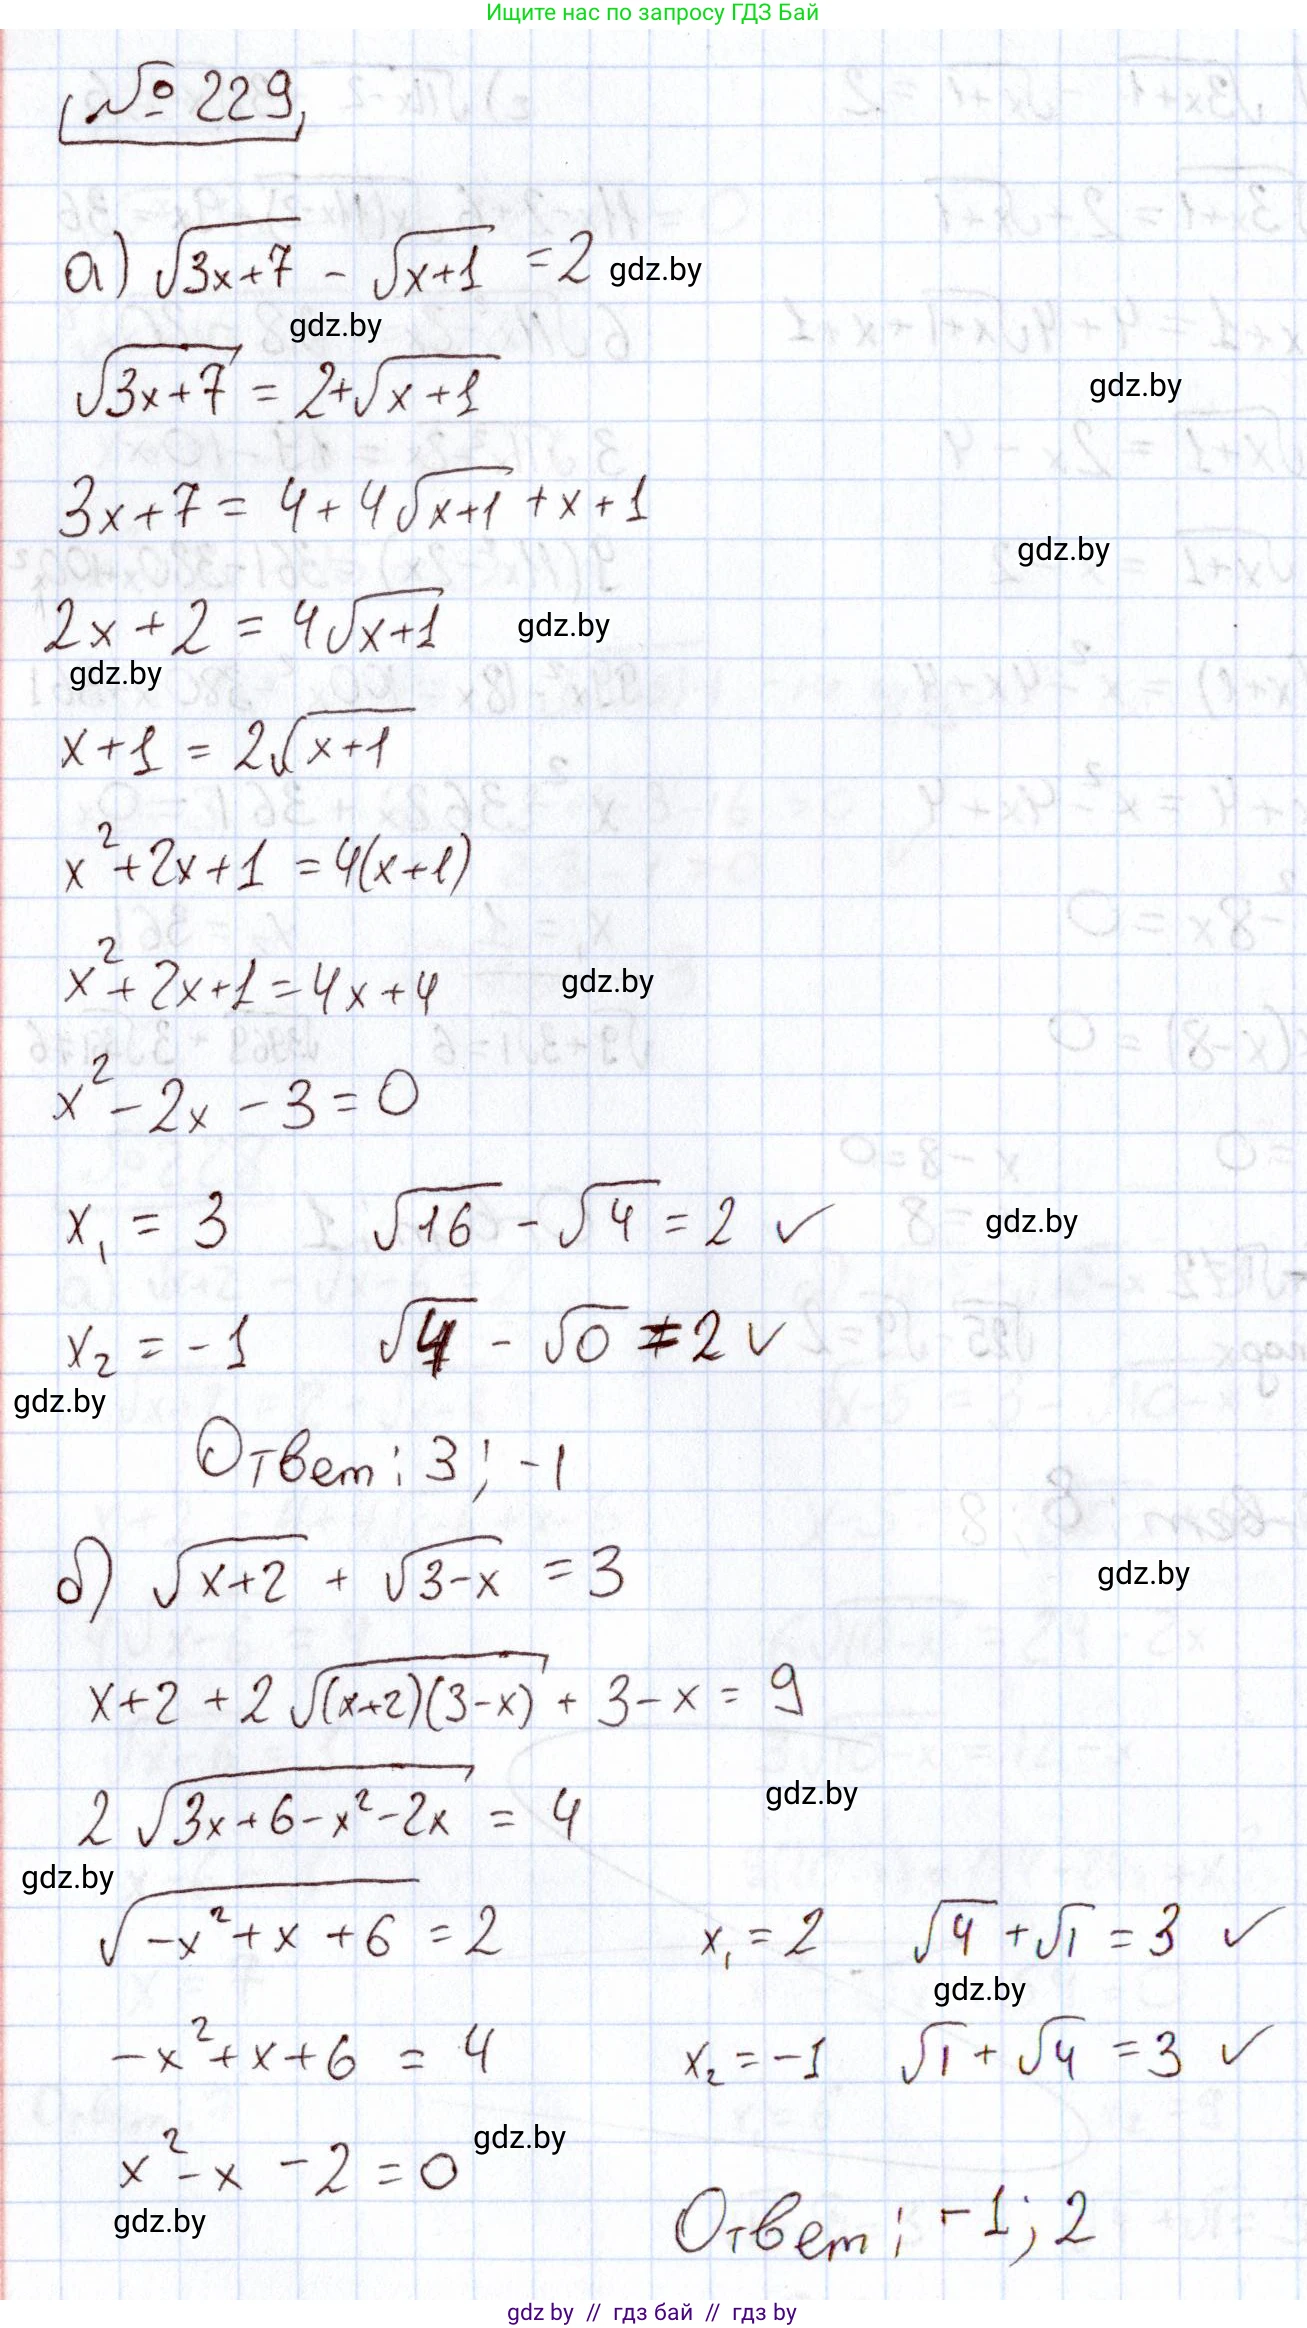 Ищите нас по запросу ГДЗ Бай
№ 229
а) √(3x+7) - √(x+1) = 2 gdz.by
gdz.by
√(3x+7) = 2+√(x+1)
gdz.by
3x+7 = 4+4√(x+1) +x+1
gdz.by
2x+2 = 4√(x+1) gdz.by
gdz.by
x+1 = 2√(x+1)
x²+2x+1 = 4(x+1)
x²+2x+1 = 4x+4 gdz.by
x²-2x-3=0
x₁ = 3 √16 - √4 = 2 ✓ gdz.by
x₂ = -1 √4 - √0 = 2 ✓
gdz.by
Ответ: 3; -1
б) √(x+2) + √(3-x) = 3 gdz.by
x+2 + 2√((x+2)(3-x)) + 3-x = 9
gdz.by
2√(3x+6-x²-2x) = 4
gdz.by
√(-x²+x+6) = 2 x₁ = 2 √4 + √1 = 3 ✓
gdz.by
-x²+x+6 = 4 x₂ = -1 √1 + √4 = 3 ✓
gdz.by
x²-x-2=0
gdz.by
Ответ: -1; 2
gdz by // гдз бай // гдз by